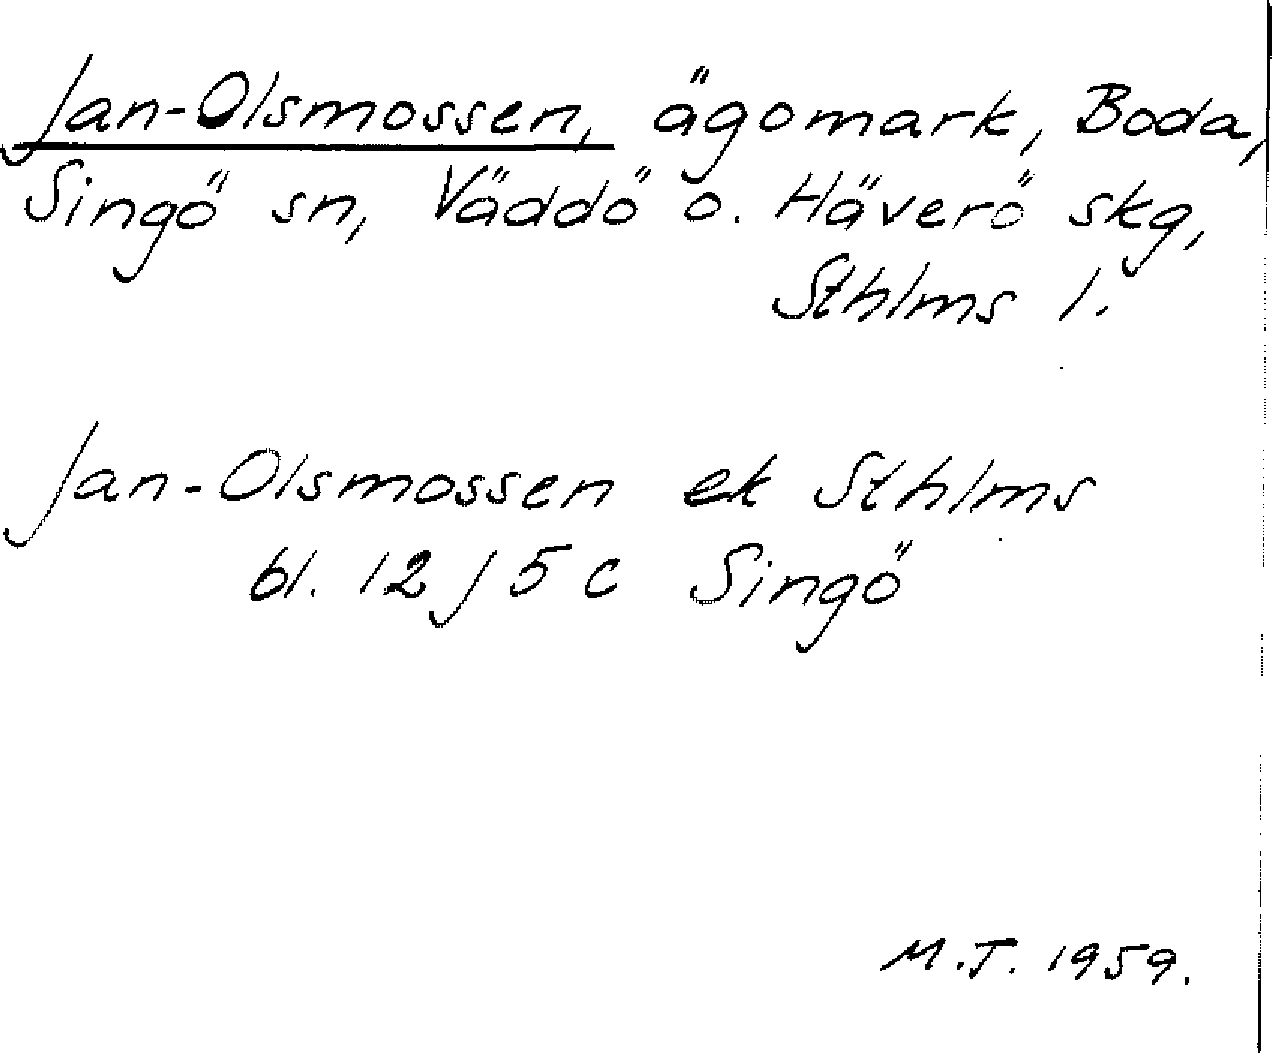 Jan-Olsmossen, ägomark, Boda,
Singö sn, Väddö o. Häverö skg,
Sthlms l.
Jan-Olsmossen ek Sthlms
bl. 12 J 5 c Singö
M.T. 1959.